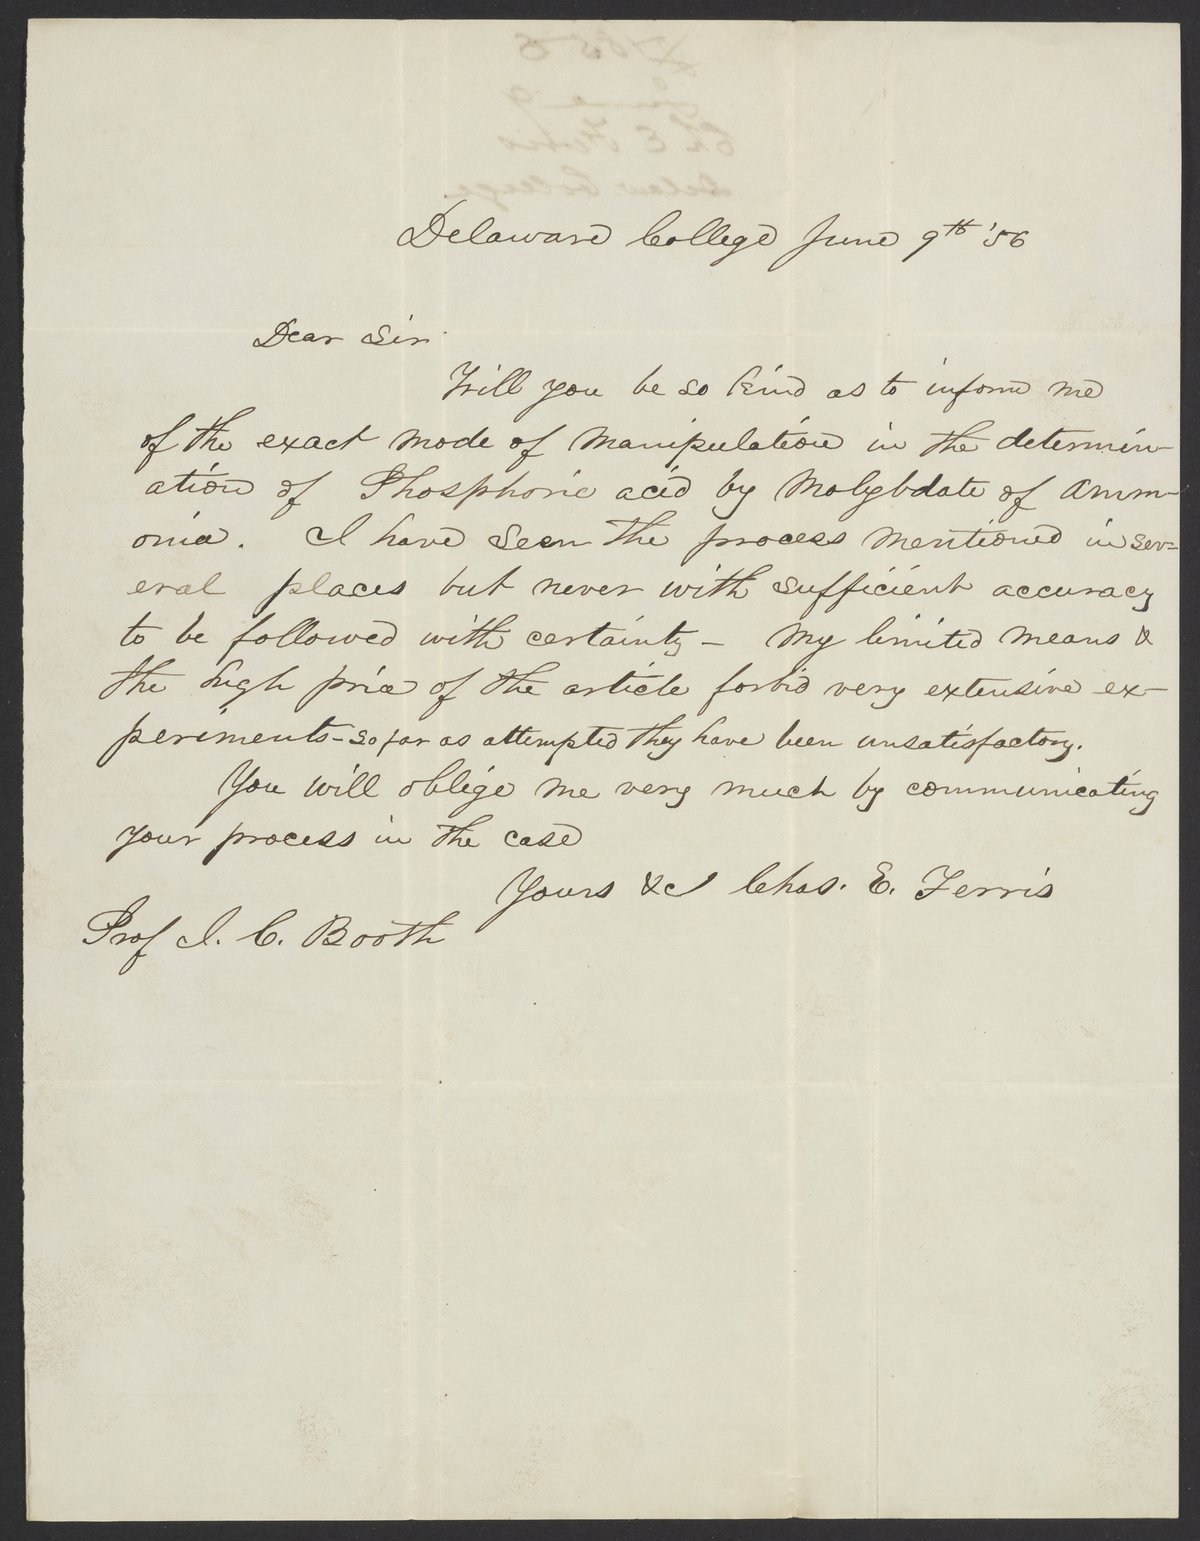 Delaware College June 9th '56
Dear Sir
Will you be so kind as to inform me
of the exact mode of manipulation in the determin-
ation of Phosphoric acid by Molybdate of Amm-
onia. I have seen the process mentioned in sev-
eral places but never with sufficient accuracy
to be followed with certainty - My limited means &
the high price of the article forbid very extensive ex-
periments - so far as attempted they have been unsatisfactory.
You will oblige me very much by communicating
your process in the case
Yours &c Chas. E. Ferris
Prof J. C. Booth